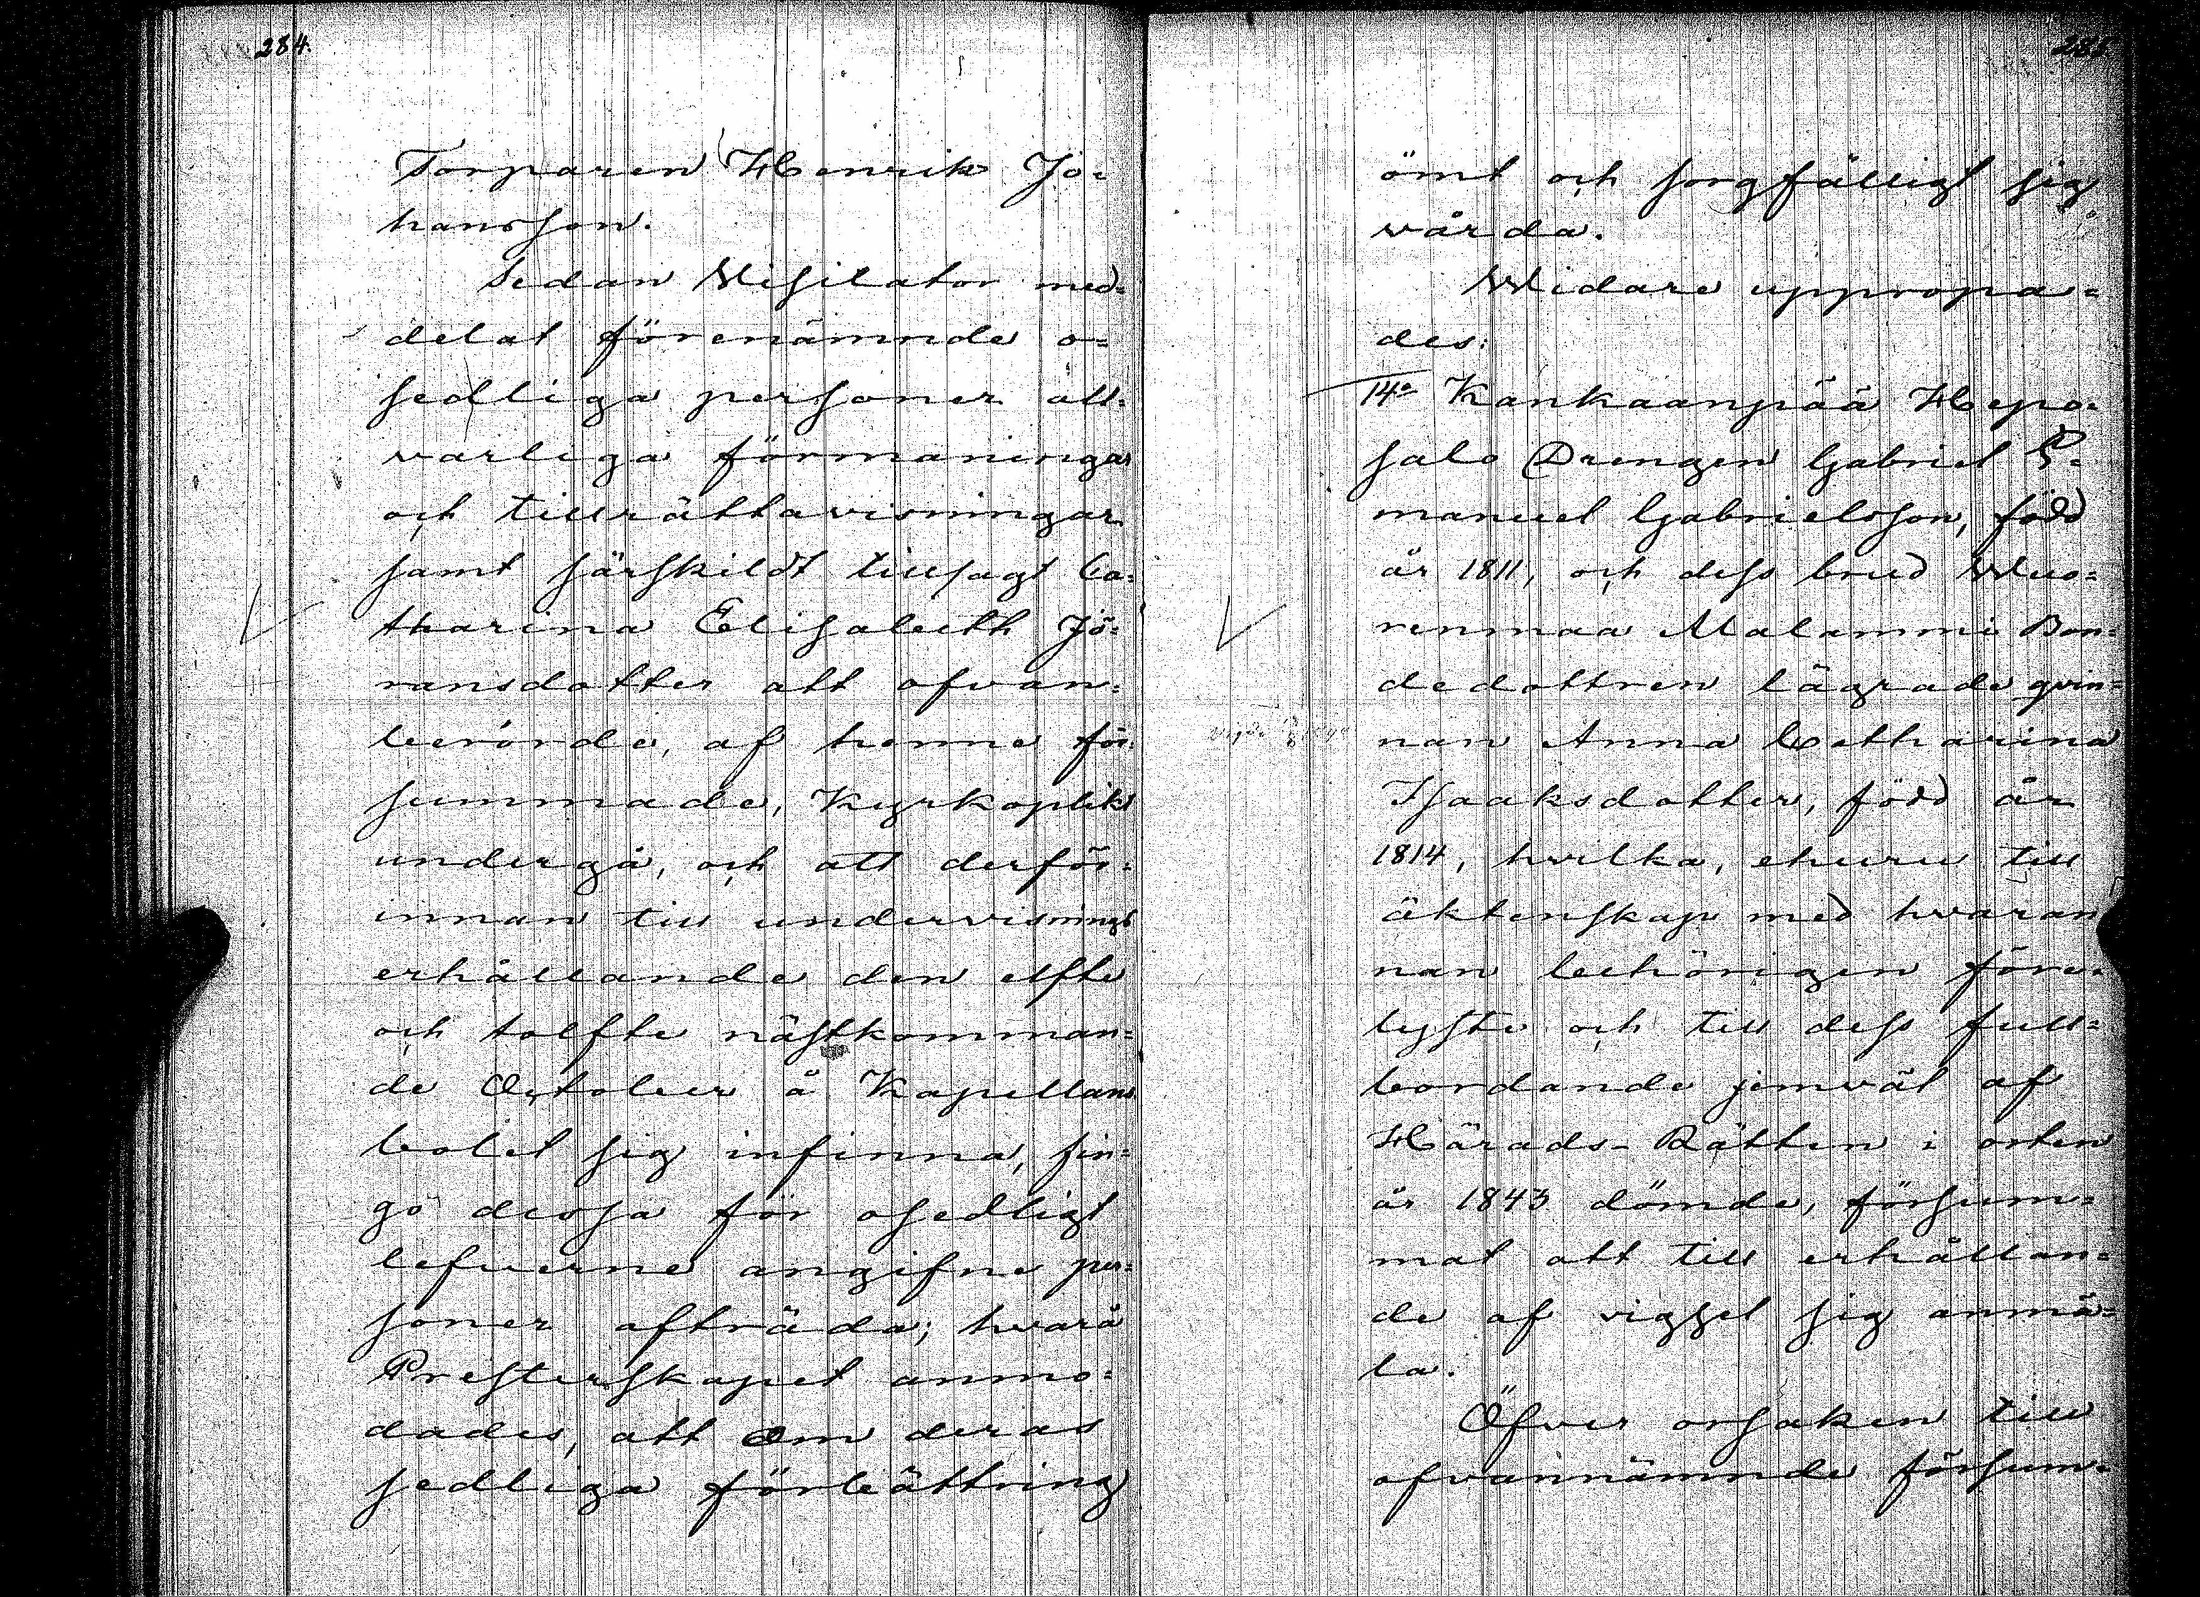 284.
Torparen Henrik Jo=
hansson.
Sedan Visitator med=
delat förenämnde o=
sedliga personer all=
varliga förmaningar
och tillrättavisningar
samt särskildt tillsagt Ca=
tharina Elisabeth Jö=
ransdotter att ofvan=
berörde, af henne för=
summade, Kyrkoplikt
undergå, och att derför=
innan till undervisnings
erhållande den elfte
och tolfte nästkomman=
de October å Kapellans
bolet sig infinna, fin=
go dessa för osedligt
lefverne angifne per=
soner afträda; hvarå
Presterskapet anmo=
dades, att om deras
sedliga förbättring
285
ömt och sorgfälligt sig
vårda.
Widare uppropa=
des:
14o Kankaanpää Hepo=
salo Drengen Gabriel E=
manuel Gabrielsson, född
år 1811, och dess brud Wuo=
renmaa Malammi Bon=
dedottren lägrade qvin=
nan Anna Catharina
Isaaksdotter, född år
1814, hvilka, ehuru till
äktenskap med hvaran
nan behörigen före=
lyste och till dess full=
bordande jemväl af
Härads-Rätten i orten
år 1843 dömde, försum=
mat att till erhållan=
de af vigsel sig anmä=
la.
Öfver orsaken till
ofvannämnde försum=